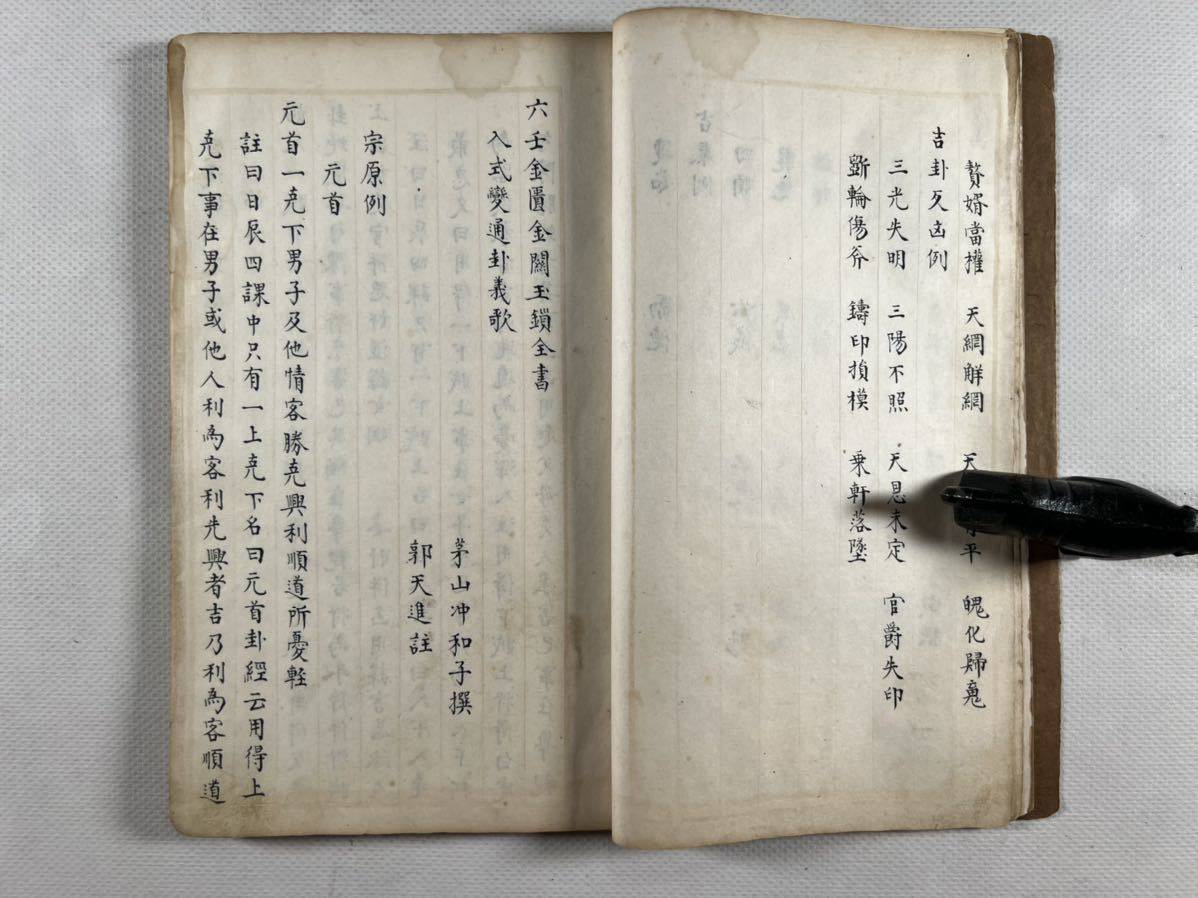 贅婿當權　天網解網　天　平　魄化歸魂
吉卦反凶例
三光失明　三陽不照　天恩未定　官爵失印
斲輪傷斧　鑄印損模　乘軒落墜
六壬金匱金關玉鎖全書
入式變通卦義歌
茅山冲和子撰
郭天進註
宗原例
元首
元首一尅下男子及他情客勝尅興利順道所憂輕
註曰日辰四課中只有一上尅下名曰元首卦經云用得上
尅下事在男子或他人利為客利先興者吉乃利為客順道